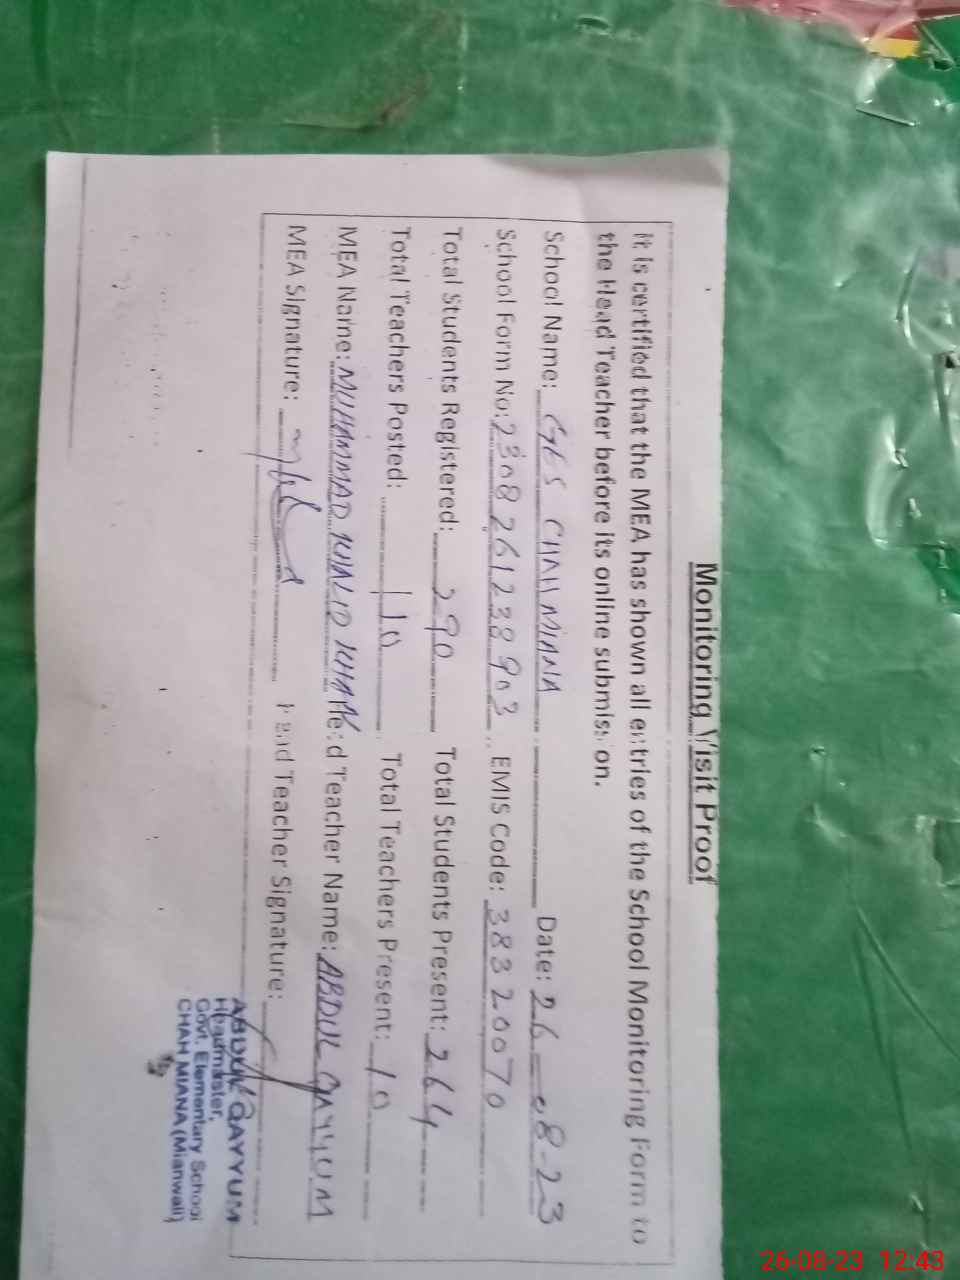 Monitoring Visit Proof
It is certified that the MEA has shown all entries of the School Monitoring Form to
the Head Teacher before its online submission.
School Name: GES CHAH MIANA Date: 26-08-23
School Form No: 2308261238903 EMIS Code: 38320070
Total Students Registered: 290 Total Students Present: 264
Total Teachers Posted: 10 Total Teachers Present: 10
MEA Name: MUHAMMAD KHALID KHAN Head Teacher Name: ABDUL QAYYUM
MEA Signature: Head Teacher Signature:
ABDUL QAYYUM
Headmaster,
Govt. Elementary School
CHAH MIANA (Mianwali)
26-08-23 12:43